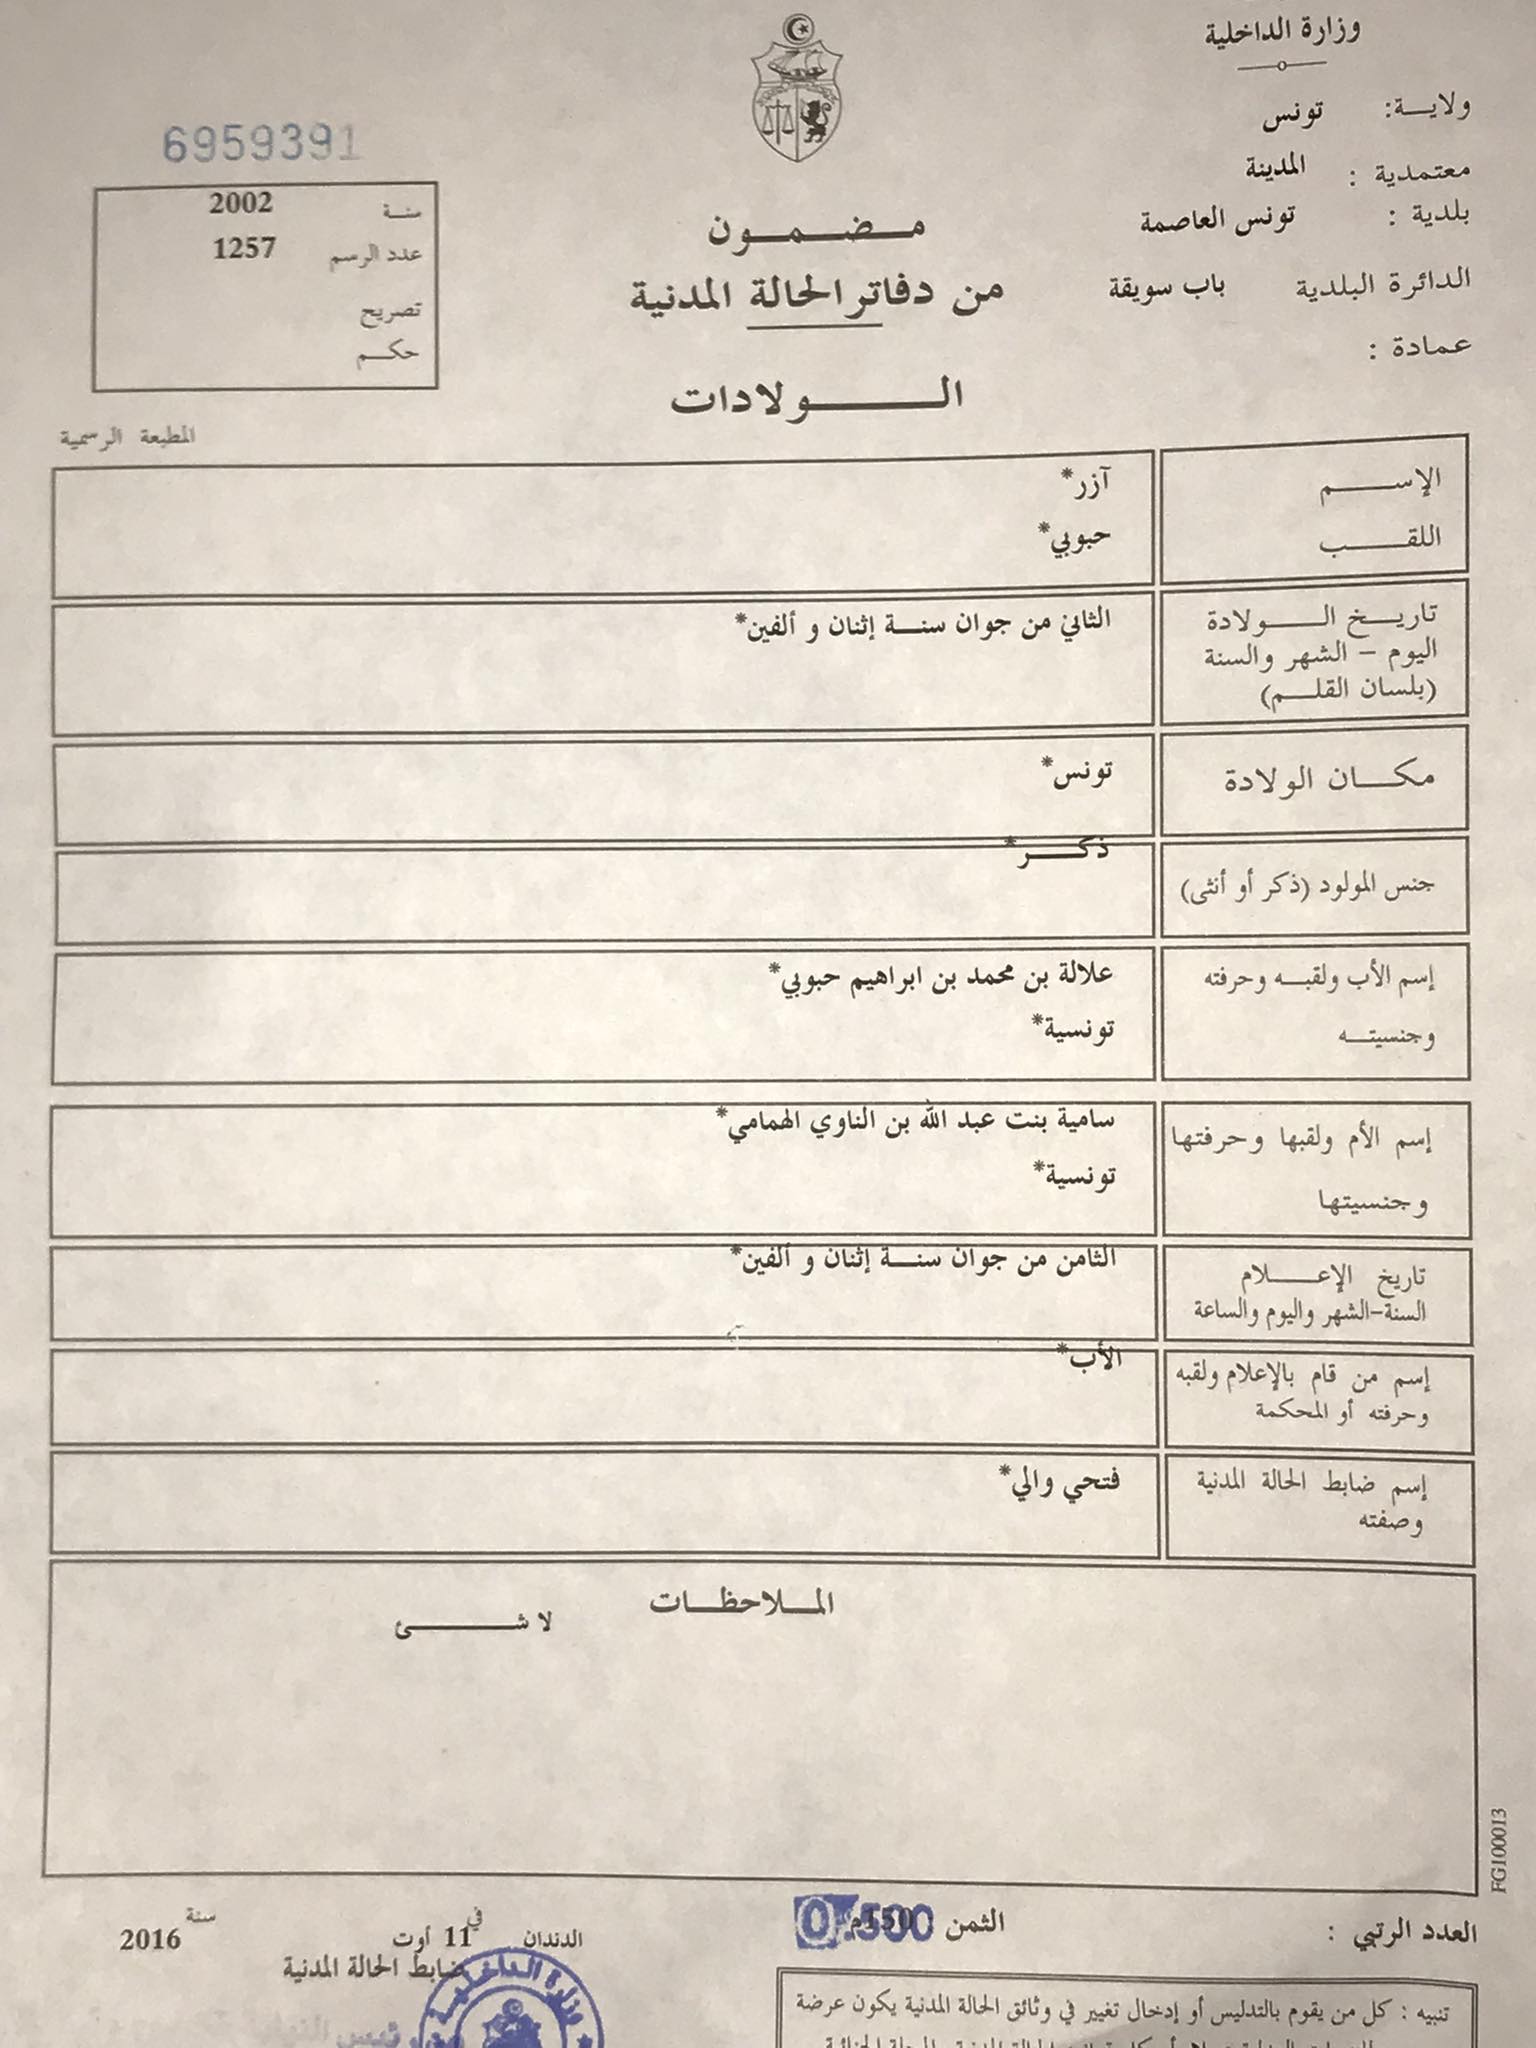 وزارة الداخلية
ولايـــة: تونس
معتمدية : المدينة
بلدية : تونس العاصمة
الدائرة البلدية باب سويقة
عمادة :
6959391
سنـة 2002
عدد الرسم 1257
تصريح
حكــم
المطبعة الرسمية
مــضــمــون
من دفاتر الحالة المدنية
الـــــولادات
الإســـــم آزر*
اللقـــــب حبوبي*
تاريــخ الــــولادة الثاني من جوان سنــة إثنان و ألفين*
اليوم – الشهر والسنة
(بلسان القلــم)
مكــــان الولادة تونس*
جنس المولود (ذكر أو أنثى) ذكـــر*
إسم الأب ولقبــه وحرفته علالة بن محمد بن ابراهيم حبوبي*
وجنسيتــه تونسية*
إسم الأم ولقبها وحرفتها سامية بنت عبد الله بن الناوي الهمامي*
وجنسيتها تونسية*
تاريخ الإعـــــلام الثامن من جوان سنــة إثنان و ألفين*
السنة-الشهر واليوم والساعة
إسم من قام بالإعلام ولقبه الأب*
وحرفته أو المحكمة
إسم ضابط الحالة المدنية فتحي والي*
وصفته
المــلاحظــات
لا شـــــــئ
FG100013
العدد الرتبي :
الثمن : 150م
0.500
الدندان في 11 أوت سنة 2016
ضابط الحالة المدنية
وزارة الداخلية
تنبيه : كل من يقوم بالتدليس أو إدخال تغيير في وثائق الحالة المدنية يكون عرضة